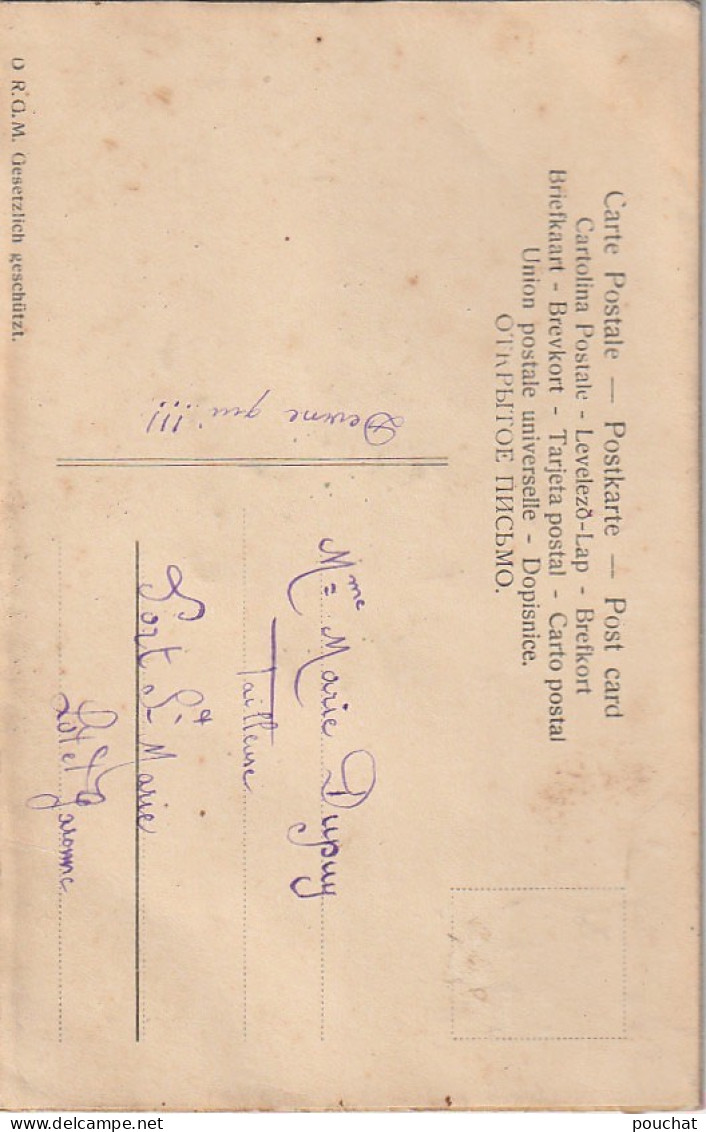 Carte Postale — Postkarte — Post card
Cartolina Postale - Levelező-Lap - Brefkort
Briefkaart - Brevkort - Tarjeta postal - Carto postal
Union postale universelle - Dopisnice.
ОТКРЫТОЕ ПИСЬМО.
Devine qui !!!
Mme Marie Dupuy
Tailleuse
Port Ste Marie
Lot et Garonne
D R.G.M. Gesetzlich geschützt.
pouchat